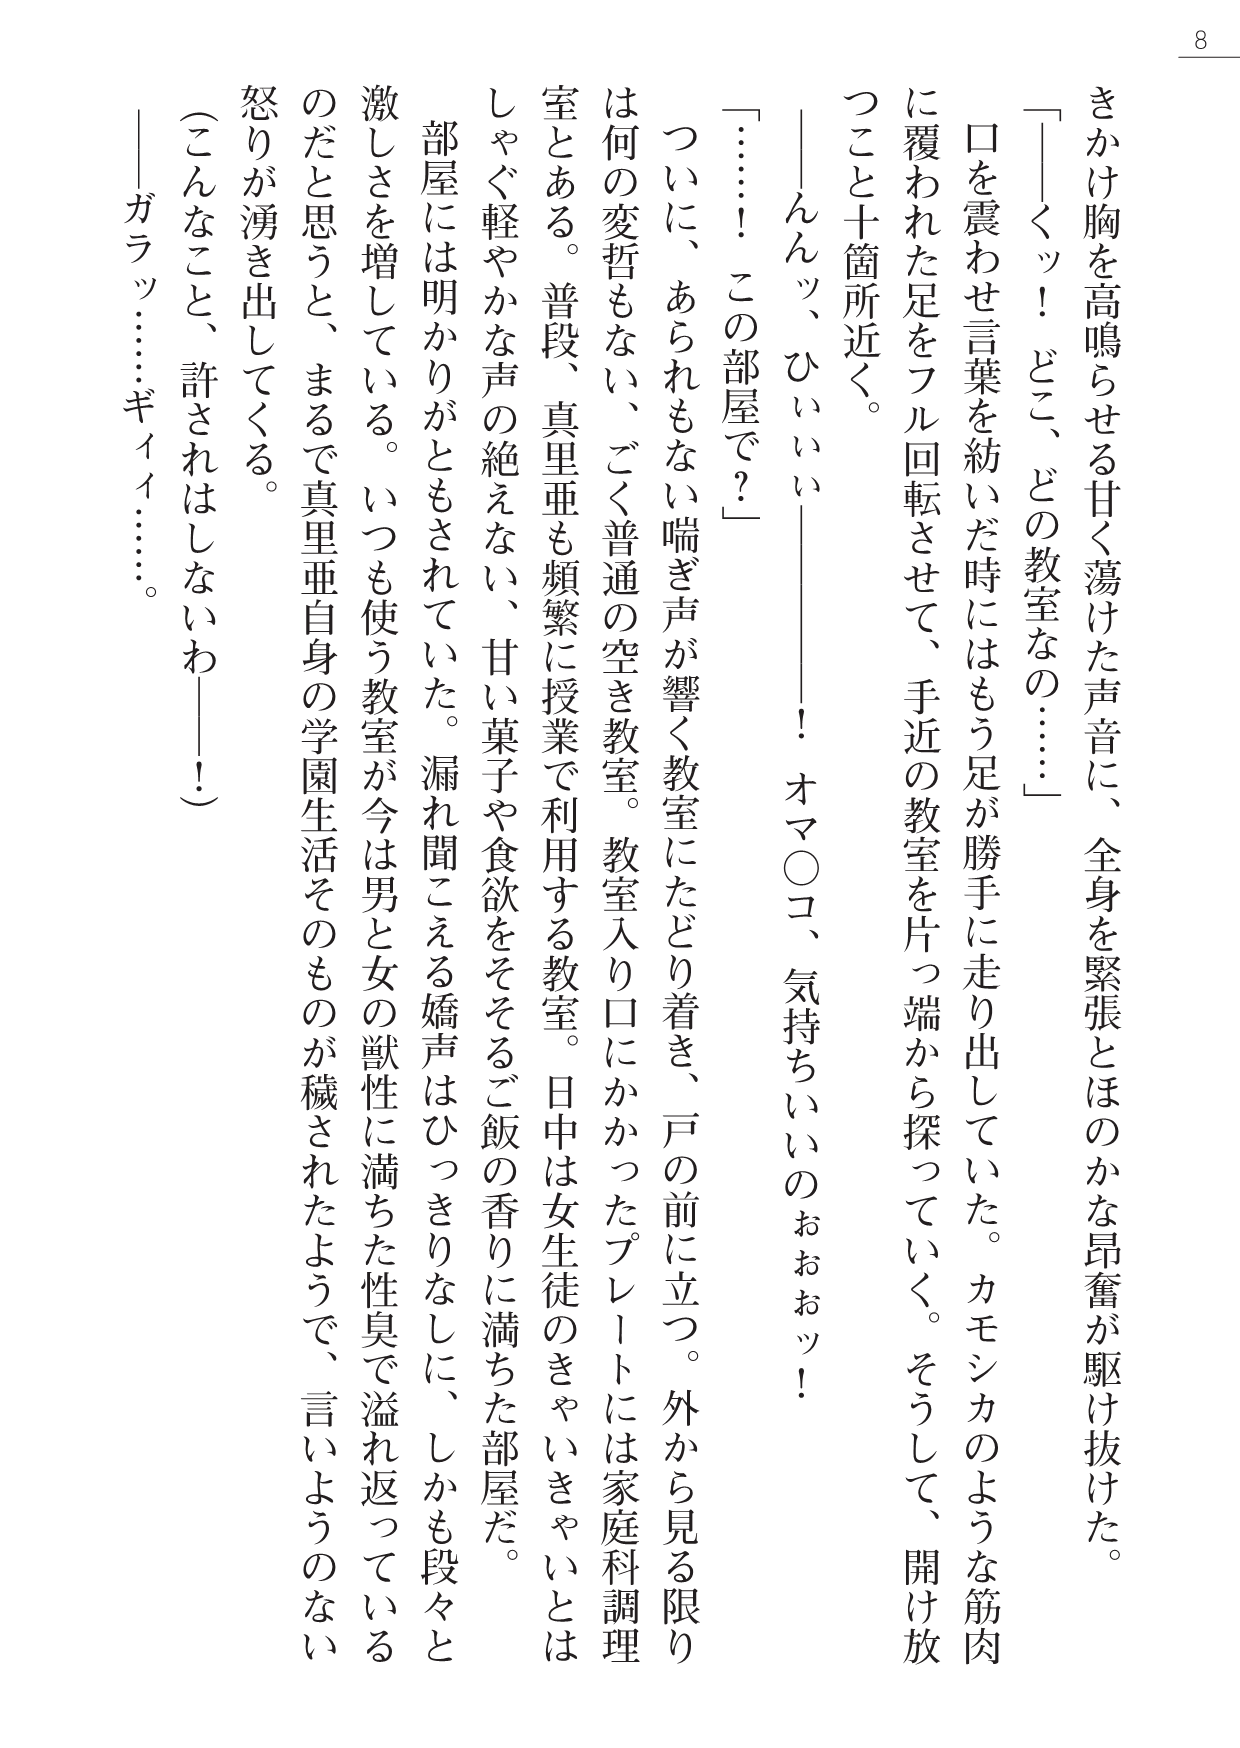 8
きかけ胸を高鳴らせる甘く蕩けた声音に、全身を緊張とほのかな昂奮が駆け抜けた。
「――くッ！　どこ、どの教室なの……」
　口を震わせ言葉を紡いだ時にはもう足が勝手に走り出していた。カモシカのような筋肉
に覆われた足をフル回転させて、手近の教室を片っ端から探っていく。そうして、開け放
つこと十箇所近く。
――んんッ、ひぃぃぃ―――――！　オマ○コ、気持ちいいのぉぉぉッ！
「……！　この部屋で？」
　ついに、あられもない喘ぎ声が響く教室にたどり着き、戸の前に立つ。外から見る限り
は何の変哲もない、ごく普通の空き教室。教室入り口にかかったプレートには家庭科調理
室とある。普段、真里亜も頻繁に授業で利用する教室。日中は女生徒のきゃいきゃいとは
しゃぐ軽やかな声の絶えない、甘い菓子や食欲をそそるご飯の香りに満ちた部屋だ。
　部屋には明かりがともされていた。漏れ聞こえる嬌声はひっきりなしに、しかも段々と
激しさを増している。いつも使う教室が今は男と女の獣性に満ちた性臭で溢れ返っている
のだと思うと、まるで真里亜自身の学園生活そのものが穢されたようで、言いようのない
怒りが湧き出してくる。
（こんなこと、許されはしないわ――！）
――ガラッ……ギィィ……。